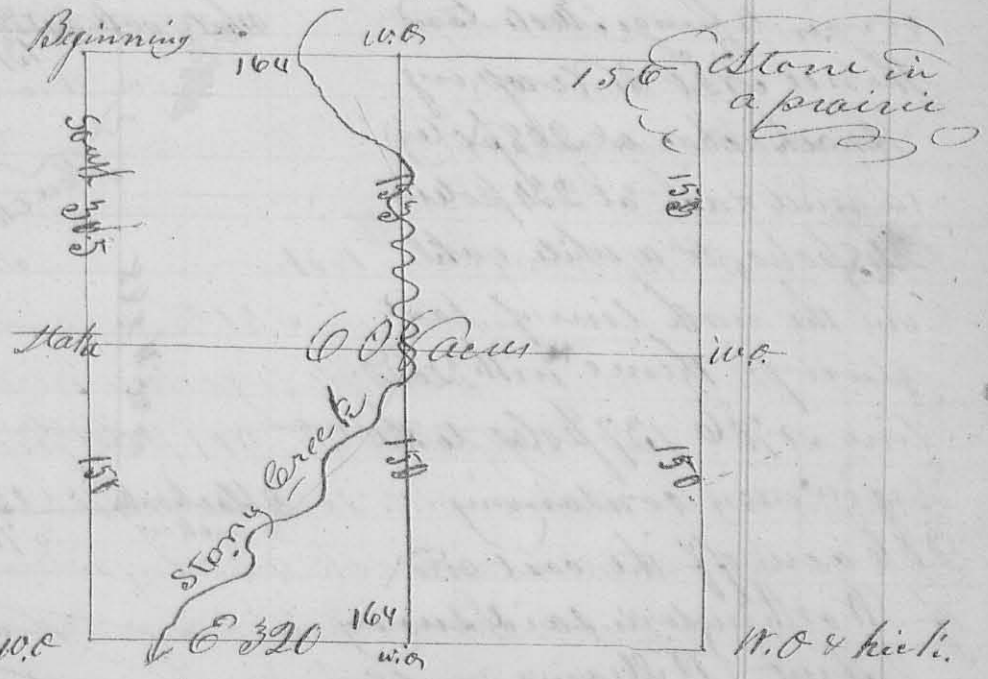 Beginning
164
w.o
156
Stone in
a prairie
South 305
153
153
Stake
600 Acres
w.o.
158
Stony Creek
150
150.
w.o
E 320
164
w.o
W.O & hick.